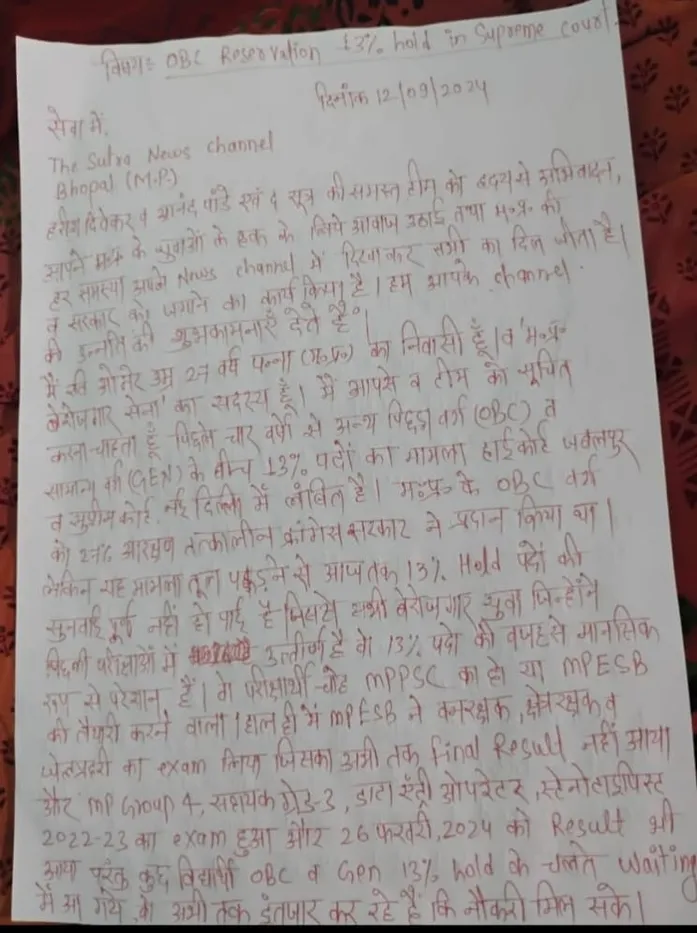 विषयः OBC Reservation 13% hold in Supreme court.
दिनांक 12/09/2024
सेवा में,
The Sutra News Channel
Bhopal (M.P.)
हरीश दिवेकर व आनंद पांडे एवं द सूत्र की समस्त टीम को ह्रदय से अभिवादन,
आपने म॰प्र॰ के युवाओं के हक के लिये आवाज उठाई तथा म॰प्र॰ की
हर समस्या अपने News channel में दिखाकर सभी का दिल जीता है।
व सरकार को जगाने का कार्य किया है। हम आपके channel
की उन्नति की शुभकामनाएँ देते हैं।
मैं रवि ओमरे उम्र 27 वर्ष पन्ना (म॰प्र॰) का निवासी हूँ। व 'म॰प्र॰
बेरोजगार सेना' का सदस्य हूँ। मैं आपसे व टीम को सूचित
करना चाहता हूँ पिछले चार वर्षों से अन्य पिछड़ा वर्ग (OBC) व
सामान्य वर्ग (GEN) के बीच 13% पदों का मामला हाईकोर्ट जबलपुर
व सुप्रीम कोर्ट नई दिल्ली में लंबित है। म॰प्र॰ के OBC वर्ग
को 27% आरक्षण तत्कालीन कांग्रेस सरकार ने प्रदान किया था।
लेकिन यह मामला तूल पकड़ने से आज तक 13% Hold पदों की
सुनवाई पूर्ण नहीं हो पाई है जिससे सभी बेरोजगार युवा जिन्होंने
पिछली परीक्षाओं में उत्तीर्ण है वो 13% पदों की वजह से मानसिक
रूप से परेशान हैं। वो परीक्षार्थी चाहे MPPSC का हो या MPESB
की तैयारी करने वाला। हाल ही में MPESB ने वनरक्षक, क्षेत्ररक्षक व
जेलप्रहरी का exam लिया जिसका अभी तक final Result नहीं आया
और MP Group 4, सहायक ग्रेड-3, डाटा एंट्री ओपरेटर, स्टेनोटाइपिस्ट
2022-23 का exam हुआ और 26 फरवरी, 2024 को Result भी
आया परंतु कुछ विद्यार्थी OBC व Gen 13% hold के चलते waiting
में आ गये वो अभी तक इंतजार कर रहे हैं कि नौकरी मिल सके।